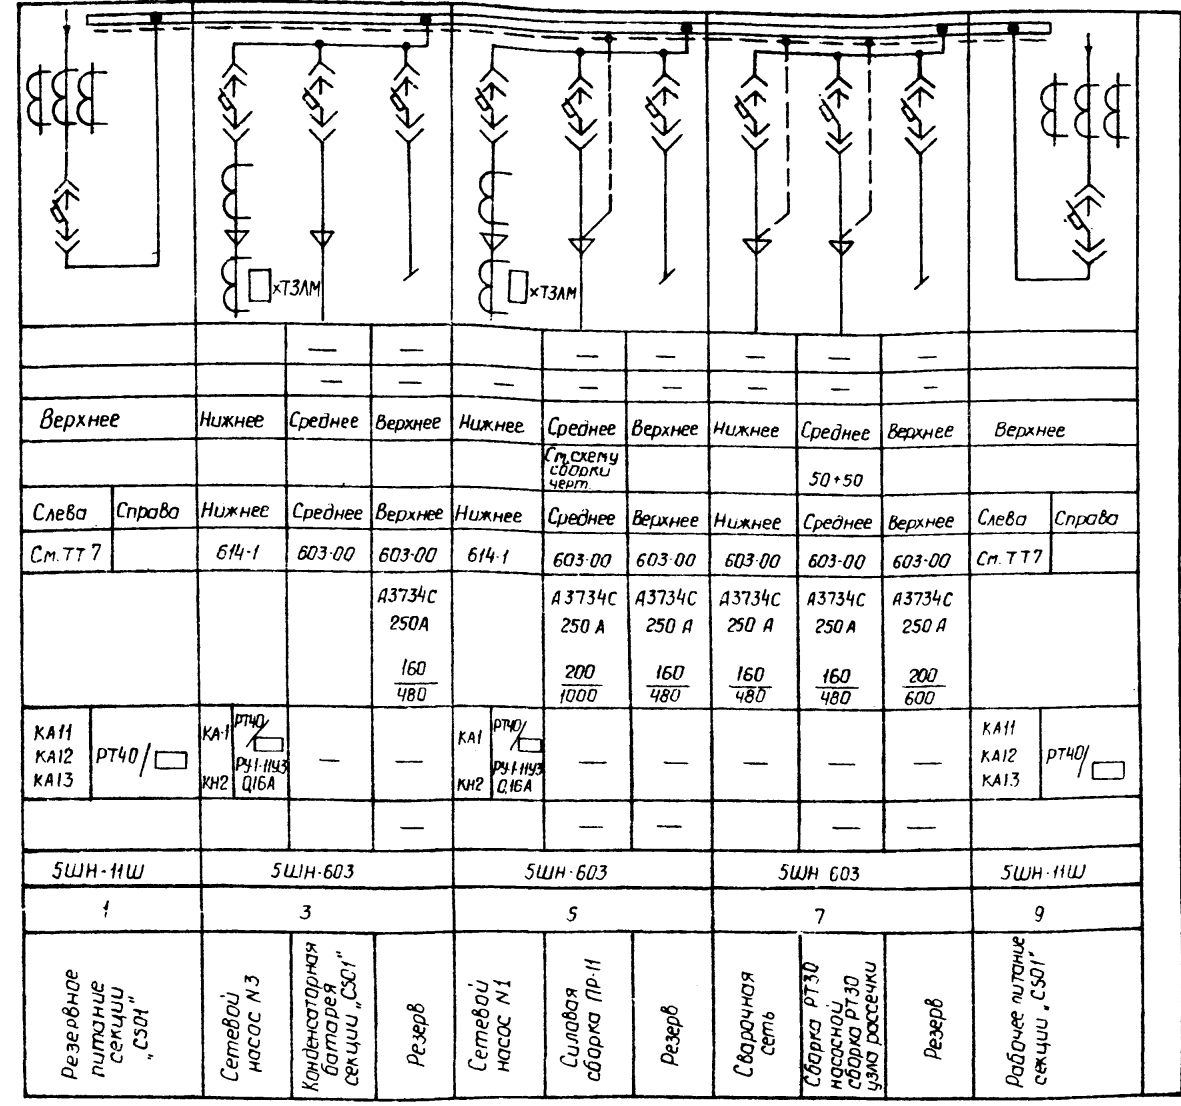 хТЗЛМ хТЗЛМ
— — — — — — —
— — — — — — — —
Верхнее Нижнее Среднее Верхнее Нижнее Среднее Верхнее Нижнее Среднее Верхнее Верхнее
См. схему
сборки
черт.
50+50
Слева Справа Нижнее Среднее Верхнее Нижнее Среднее Верхнее Нижнее Среднее Верхнее Слева Справа
См. ТТ7 614-1 603-00 603-00 614-1 603-00 603-00 603-00 603-00 603-00 См. ТТ7
А3734С А3734С А3734С А3734С А3734С А3734С
250А 250 А 250 А 250 А 250 А 250 А
160 200 160 160 160 200
480 1000 480 480 480 600
КА11
КА12
КА13
РТ40/
КА-1
КН2
РТ40/
РУ-1-11У3
0,16А
— —
КА1
КН2
РТ40/
РУ-1-11У3
0,16А
— — — — —
КА11
КА12
КА13
РТ40/
— — — — —
5ШН-11Ш 5ШН-603 5ШН-603 5ШН 603 5ШН-11Ш
1 3 5 7 9
Резервное
питание
секции
„CS01"
Сетевой
насос N3
Конденсаторная
батарея
секции „CS01"
Резерв
Сетевой
насос N1
Силовая
сборка ПР-11
Резерв
Сварочная
сеть
Сборка РТ30
насосной
сборка РТ30
узла рассечки
Резерв
Рабочее питание
секции „CS01"